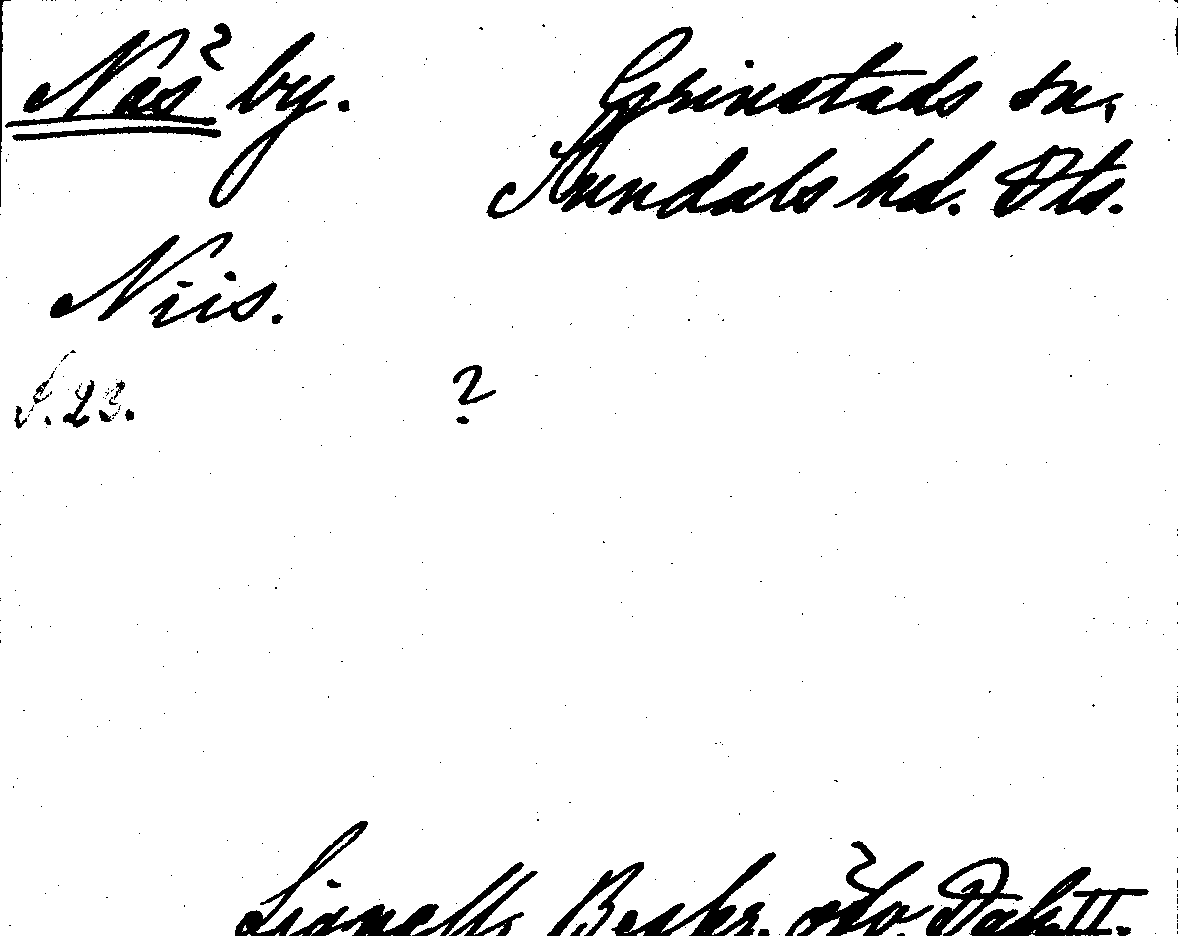 Näs by. Grinstads sn,
Sundals hd. Dls.
Niis.
S. 23. ?
Lignell, Beskr. öfv. Dal. II.